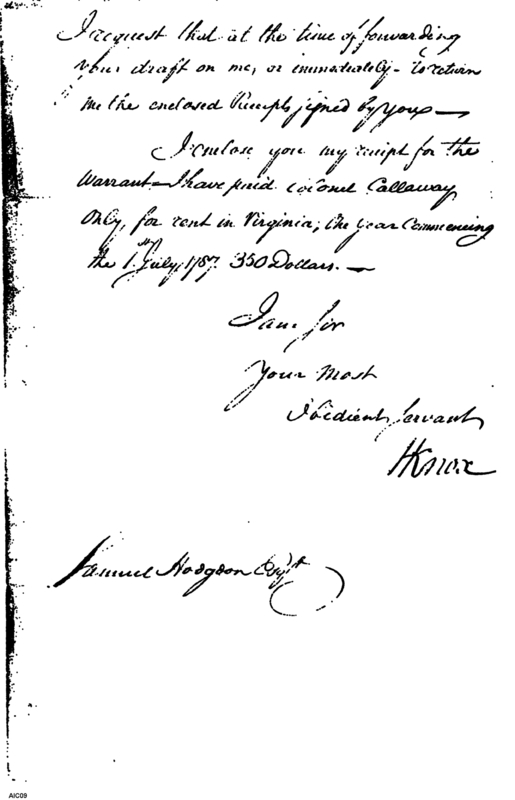 I request that at the time of forwarding
your draft on me, or immediately - to return
me the enclosed Receipts signed by you —
I enclose you my receipt for the
Warrant - I have paid colonel Callaway
Only, for rent in Virginia, the year Commencing
the 1st July, 1787. 350 Dollars. —
I am Sir
Your Most
Obedient Servant
HKnox
Samuel Hodgdon Esqr
AIC09